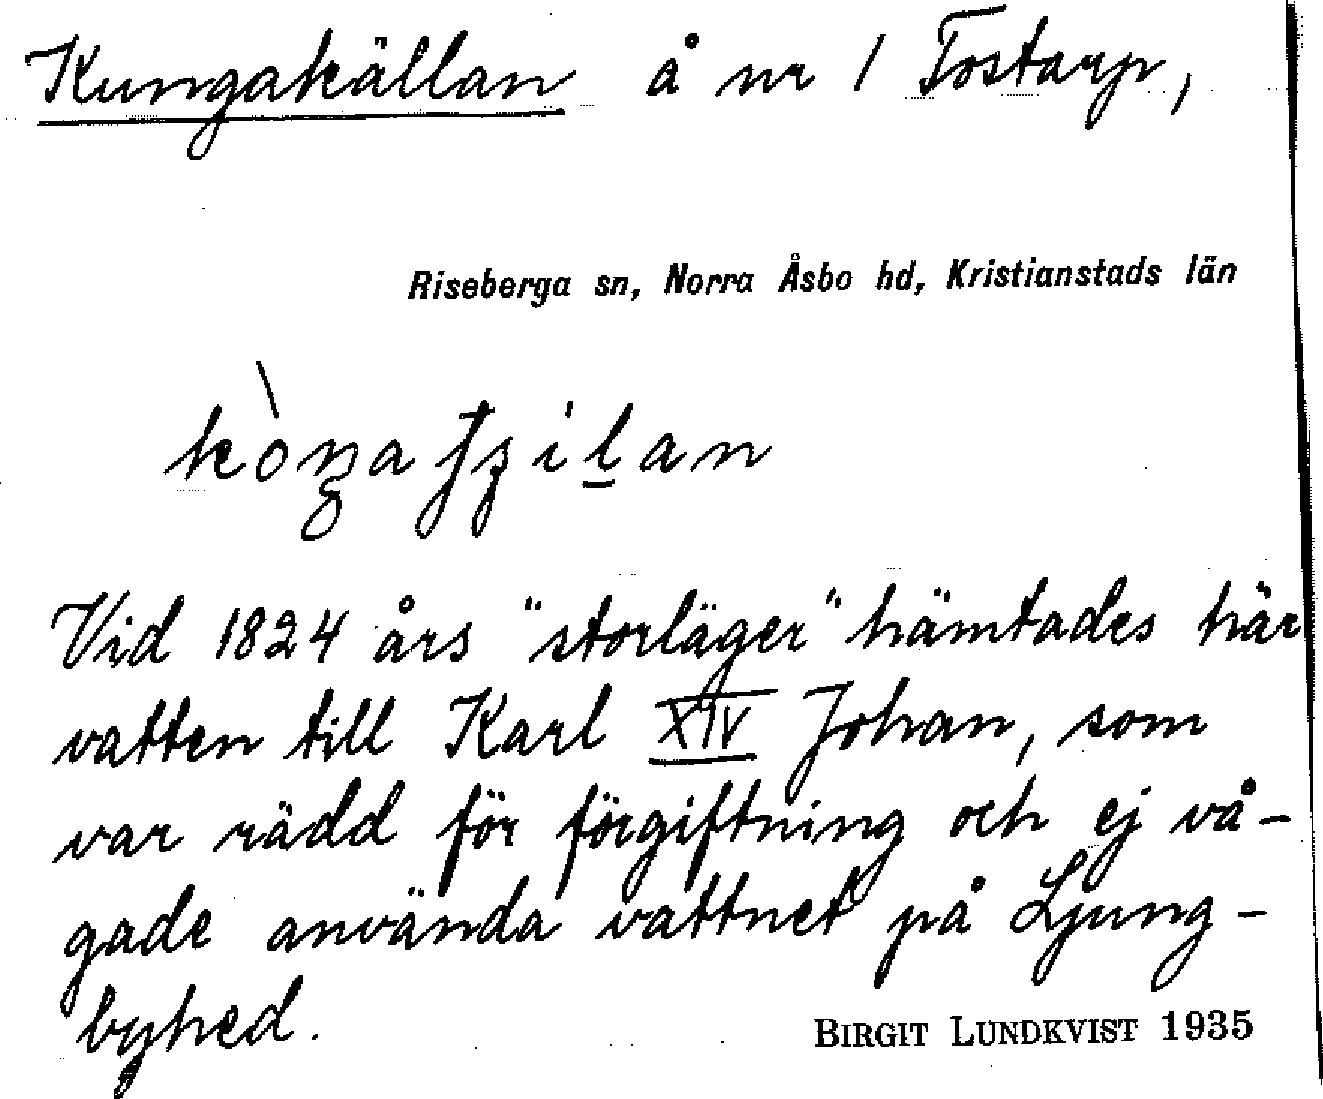 Kungakällan å nr 1 Tostarp,
Riseberga sn, Norra Åsbo hd, Kristianstads län
Vid 1824 års "storläger" hämtades här
vatten till Karl XIV Johan, som
var rädd för förgiftning och ej vå-
gade använda vattnet på Ljung-
byhed.
BIRGIT LUNDKVIST 1935